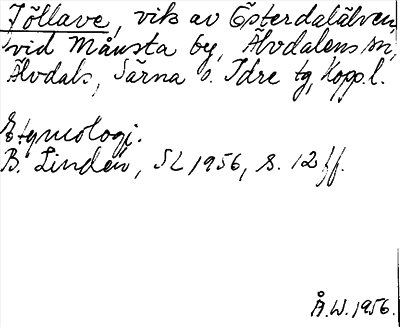 Jöllave, vik av Österdalälven
vid Månsta by, Älvdalens sn,
Älvdals, Särna o. Idre tg, Kopp. l.
Etymologi.
B. Lindén, SL 1956, s. 12 ff.
Å.W. 1956.